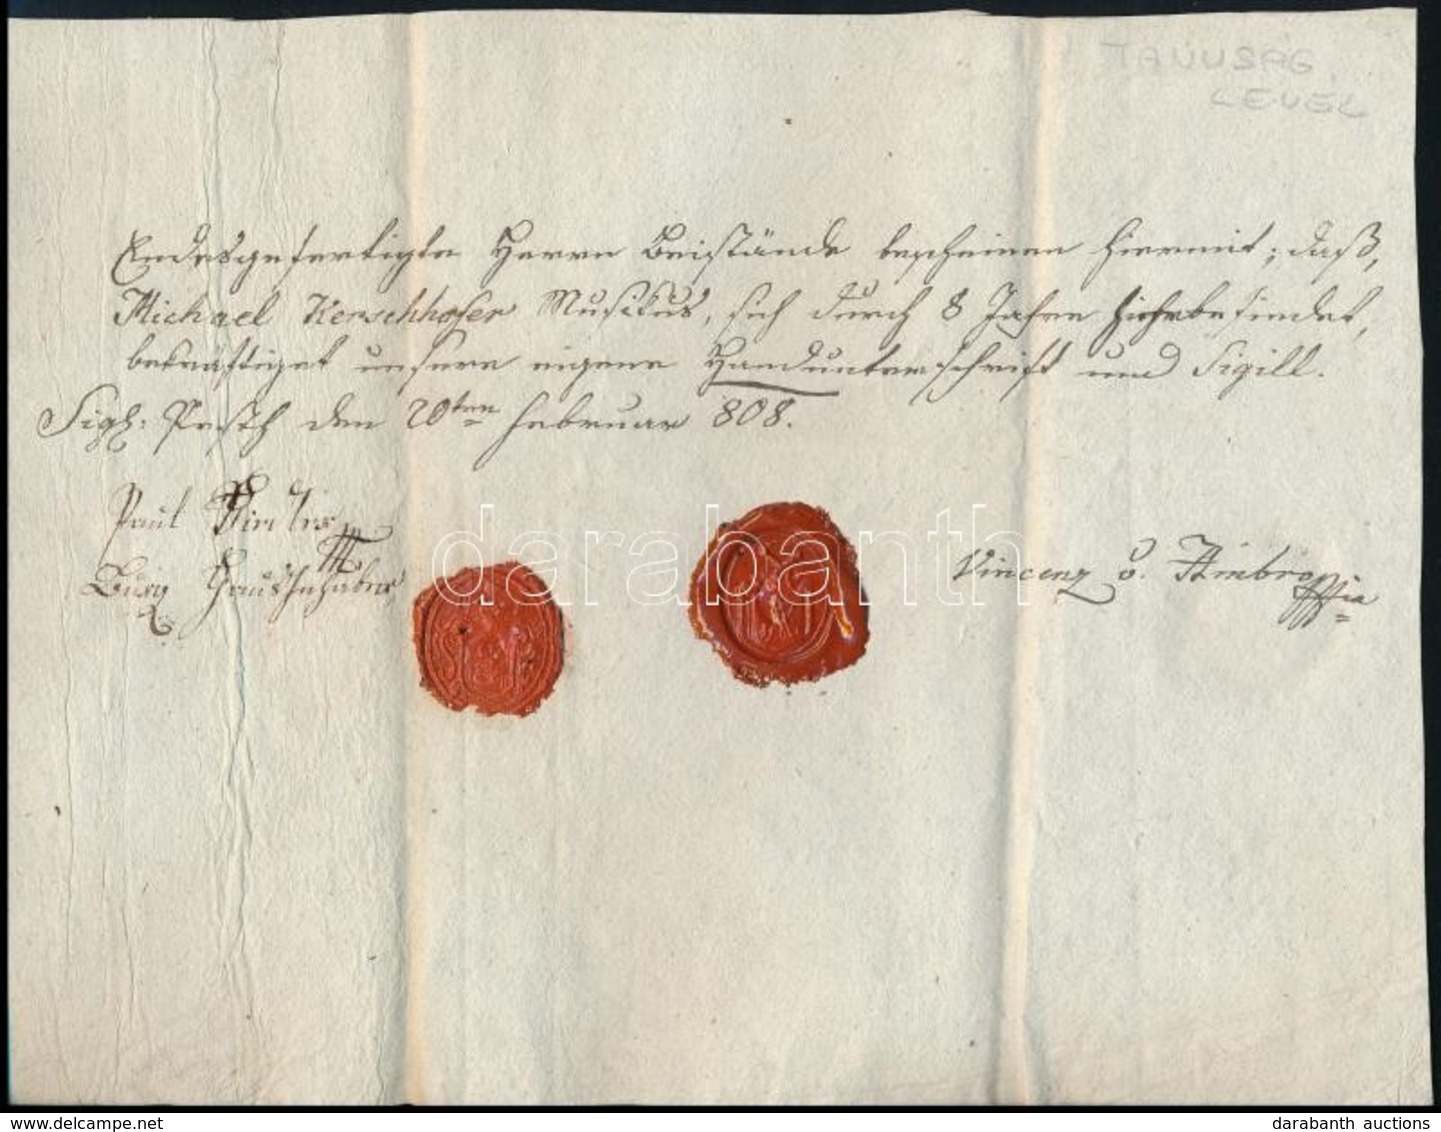 TANUSÁG
LEVEL
Endesgefertigte Herrn Beistände bescheinen hiermit; daß,
Michael Kerschhofer Musikus, sich durch 8 Jahre hier befindet,
bekräftiget unsere eigene Handunterschrift und Sigill.
Sigl: Pesth den 20ten Februar 808.
Paul
Burg Hausinhaber
Vincenz v. Ambro
darabanth
www.delcampe.net
darabanth auctions